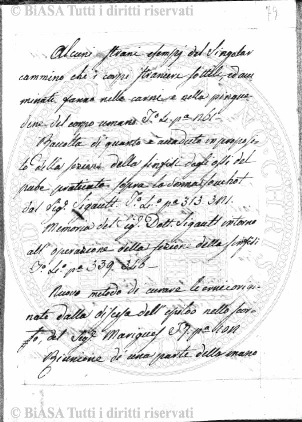 © BiASA Tutti i diritti riservati
79
Alcuni strani esempj del singolar
cammino che i corpi stranieri sottili, ed acu
minati fanno nella carne e nella pingue
dine del corpo umano To. L. pa. 261.
Raccolta di quanto è accaduto in proposi
to della sezione della sinfisi degli ossi del
pube praticata sopra la donna Souchot
dal Sigr. Sigault To. L. pa. 313 301.
Memoria del Sigr. Dott. Sigault intorno
all'operazione della sezione della sinfisi
To. L. pa. 339 326
Nuovo metodo di curare le ernie origi
nate dalla discesa dell'epiploo nello scro
to, del Sigr. Mariques
Riunione di una parte della mano
© BiASA Tutti i diritti riservati